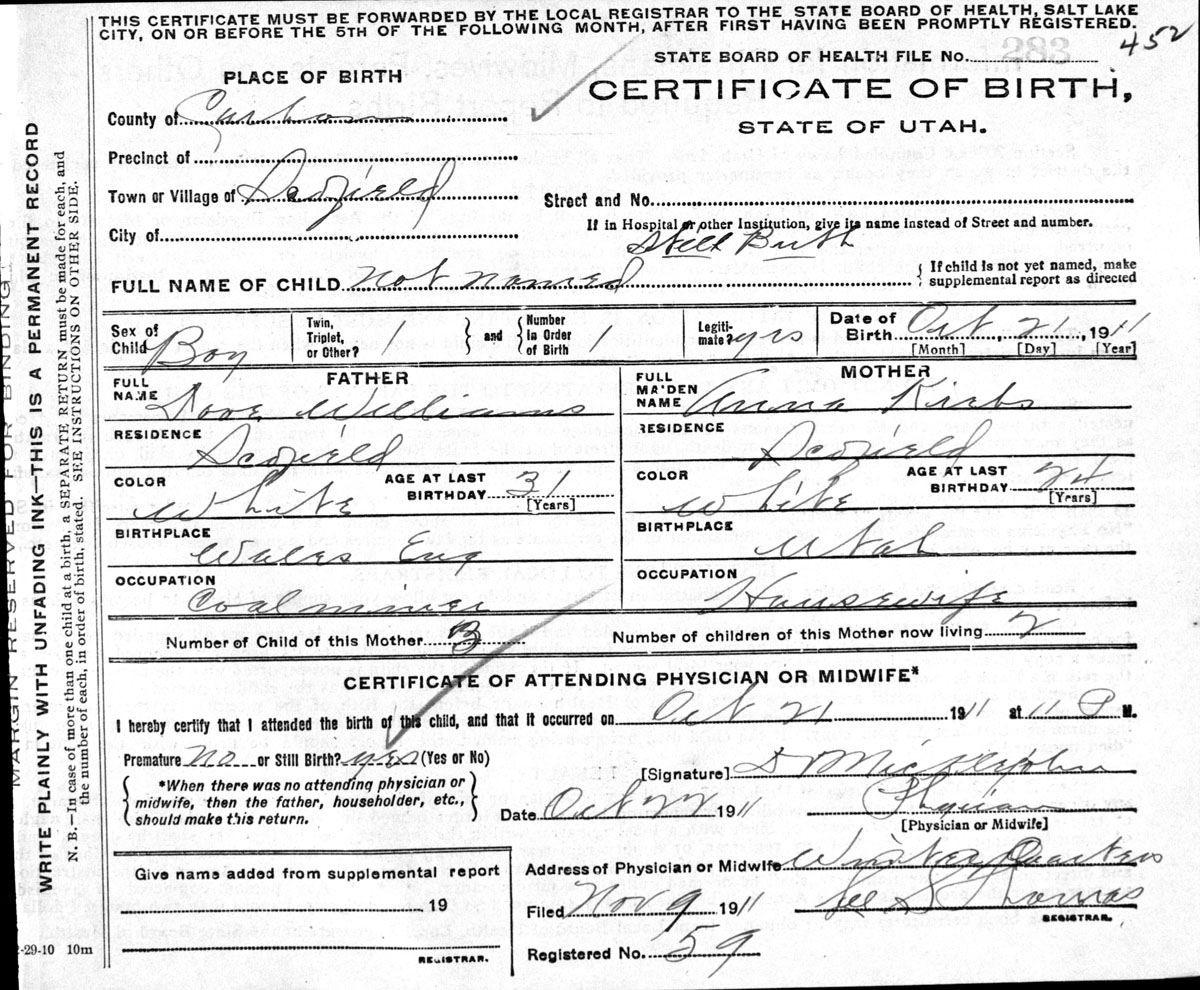 THIS CERTIFICATE MUST BE FORWARDED BY THE LOCAL REGISTRAR TO THE STATE BOARD OF HEALTH, SALT LAKE
CITY, ON OR BEFORE THE 5TH OF THE FOLLOWING MONTH, AFTER FIRST HAVING BEEN PROMPTLY REGISTERED.
452
STATE BOARD OF HEALTH FILE No.
283
PLACE OF BIRTH
CERTIFICATE OF BIRTH,
STATE OF UTAH.
County of Carbon
Precinct of
Town or Village of Scofield
Street and No.
City of
If in Hospital or other Institution, give its name instead of Street and number.
Still Birth
FULL NAME OF CHILD not named
If child is not yet named, make
supplemental report as directed
Sex of Child Boy
Twin, Triplet, or Other? 1
and
Number in Order of Birth 1
Legiti-mate? yrs
Date of Birth Oct 21, 1911
[Month] [Day] [Year]
FATHER
FULL NAME Dove Williams
RESIDENCE
Scofield
COLOR White
AGE AT LAST BIRTHDAY 31
[Years]
BIRTHPLACE
Wales Eng
OCCUPATION
Coalminer
MOTHER
FULL MAIDEN NAME Anna Kirbs
RESIDENCE
Scofield
COLOR White
AGE AT LAST BIRTHDAY 24
[Years]
BIRTHPLACE
Utah
OCCUPATION
Housewife
Number of Child of this Mother 3
Number of children of this Mother now living 2
CERTIFICATE OF ATTENDING PHYSICIAN OR MIDWIFE*
I hereby certify that I attended the birth of this child, and that it occurred on Oct 21 1911 at 11 P M.
Premature no or Still Birth? yes (Yes or No)
*When there was no attending physician or
midwife, then the father, householder, etc.,
should make this return.
[Signature]
Date Oct 22 1911
[Physician or Midwife]
Give name added from supplemental report
19
REGISTRAR.
Address of Physician or Midwife Winter Quarters
Filed Nov 9 1911
Thomas
REGISTRAR.
Registered No. 59
2-29-10 10m
MARGIN RESERVED FOR BINDING
WRITE PLAINLY WITH UNFADING INK—THIS IS A PERMANENT RECORD
N. B.—In case of more than one child at a birth, a SEPARATE RETURN must be made for each, and
the number of each, in order of birth, stated. SEE INSTRUCTIONS ON OTHER SIDE.